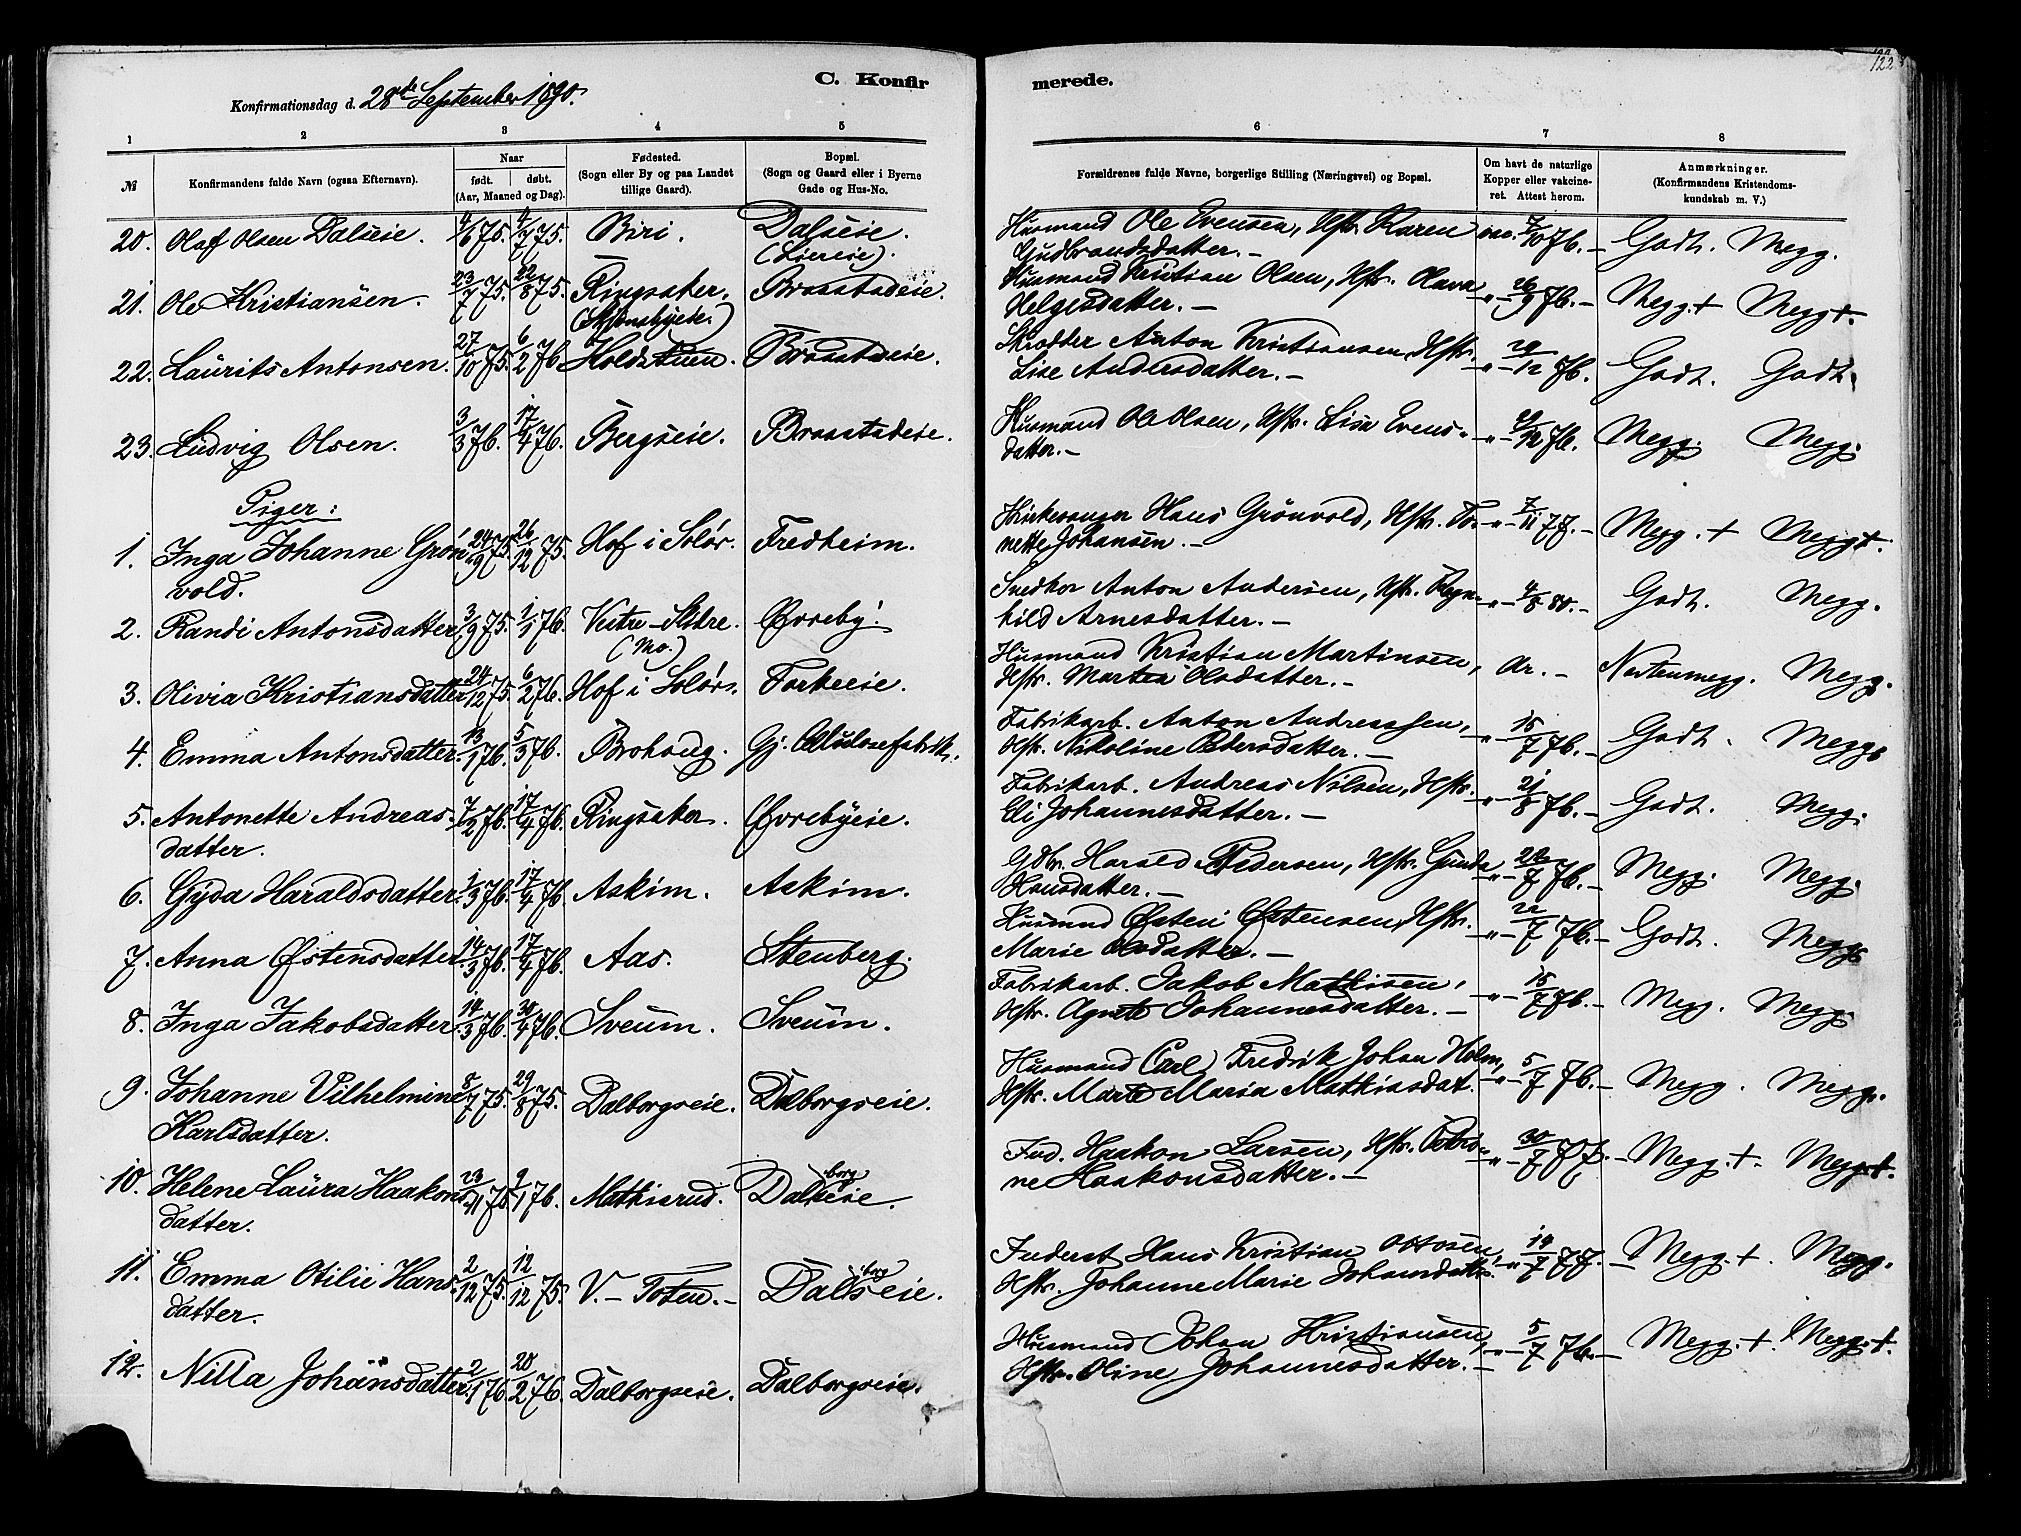 122
C. Konfirmerede.
Konfirmationsdag d. 28de September 1890.
1 2 3 4 5 6 7 8
№ Konfirmandens fulde Navn (ogsaa Efternavn). Naar født. døbt. (Aar, Maaned og Dag). Fødested. (Sogn eller By og paa Landet tillige Gaard). Bopæl. (Sogn og Gaard eller i Byerne Gade og Hus-No. Forældrenes fulde Navne, borgerlige Stilling (Næringsvei) og Bopæl. Om havt de naturlige Kopper eller vakcineret. Attest herom. Anmærkninger. (Konfirmandens Kristendomskundskab m. V.)
20. Olaf Olsen Dalseie. 4/6 75. 4/7 75. Biri. Dalseie. Husmand Ole Evensen, Hstr. Karen vac. 7/10 76. – Godt. Megg.
Gudbrandsdatter. –
21. Ole Kristiansen. 23/7 75. 22/8 75. Ringsaker. Braastadeie. Husmand Kristian Olsen, Hstr. Olava –"– 26/9 76. – Megg.+ Megg+.
Helgesdatter. –
22. Laurits Antonsen. 27/10 75. 6/2 76 Braastadeie. Skrædder Anton Kristiansen, Hstr. –"– 29/12 76. Godt. Godt.
Lise Andersdatter. –
23. Ludvig Olsen. 3/3 76. 17/4 76. Bergseie. Braastadeie. Husmand Ole Olsen, Hstr. Lisa Evens- –"– 29/12 76. Megg. Megg.
datter. –
Piger:
1. Inga Johanne Gron 24/9 75. 26/12 75. Hof i Solør. Fredheim. Kirkesanger Hans Grönvold, Hstr. To- –"– 7/11 77. – Megg. + Megg+.
vold. nette Johansen. –
2. Randi Antonsdatter 3/9 75. 1/1 76. Vestre-Slidre. Øvreby. Snedker Anton Andersen, Hstr. Ragn- –"– 4/8 80. – Godt. Megg.
(Mo.) hild Arnesdatter. –
3. Olivia Kristiansdatter 24/12 75. 6/2 76. Hof i Solør. Husmand Kristian Martinsen, Ar. – Næstenmegg. Megg.
Hstr. Martea Olsdatter. –
4. Emma Antonsdatter. 13/1 76. 5/3 76. Brohaug. Gj. Cellulosefabrik. Fabrikarb. Anton Andreassen, –"– 15/7 76. – Godt. Megg.
Hstr. Nikoline Pedersdatter. –
5. Antonette Andreas- 7/2 76. 17/4 76. Ringsaker. Øvrebyeie. Fabrikarb. Andreas Nilsen, Hstr. –"– 21/8 76. – Godt. Megg.
datter. Eli Johannesdatter. –
6. Gyda Haraldsdatter. 1/3 76. 17/4 76. Askim. Askim. Gdbr. Harald Pedersen, Hstr. Gunda –"– 22/7 76. – Megg. Megg.
Hansdatter. –
7. Anna Østensdatter. 14/3 76. 17/4 76. Aas. Stenberg. Husmand Østen Østensen, Hstr. –"– 22/7 76. – Godt. Megg.
Marie Olsdatter. –
8. Inga Jakobsdatter 14/3 76. 30/4 76. Sveum. Sveum. Fabrikarb. Jakob Mathisen, –"– 15/7 76. – Megg. Megg.
Hstr. Agnete Johannesdatter. –
9. Johanne Vilhelmine 8/7 75. 29/8 75. Dalborgseie. Dalborgseie. Husmand Carl Fredrik Johan Holm, –"– 5/7 76. – Megg. Megg.
Karlsdatter. Hstr. Marte Maria Mathiasdat.
10. Helene Laura Haakons 23/11 75 9/1 76. Mathisrud. Dalborgseie. Ind. Haakon Larsen, Hstr. Petri- –"– 30/7 77. – Megg.+. Megg.+.
datter. ne Haakonsdatter. –
11. Emma Otilie Hans- 2/12 75. 12/12 75. V.-Toten. – Dalborgseie. Inderst Hans Kristian Ottosen, –"– 19/7 77. – Megg.+. Megg.
datter. Hstr. Johanne Marie Johansdatter.
12. Nilla Johansdatter. 2/1 76. 20/2 76. Dalborgseie. Dalborgseie. Husmand Johan Kristiansen, –"– 5/7 76. – Megg.+. Megg.+.
Hstr. Oline Johannesdatter. –